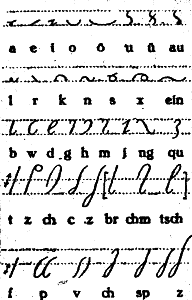 a e i o ö u ü au
l r k n s x ein
b w d g h m j ng qu
t z ch c z br chm tsch
f p v ch sp z